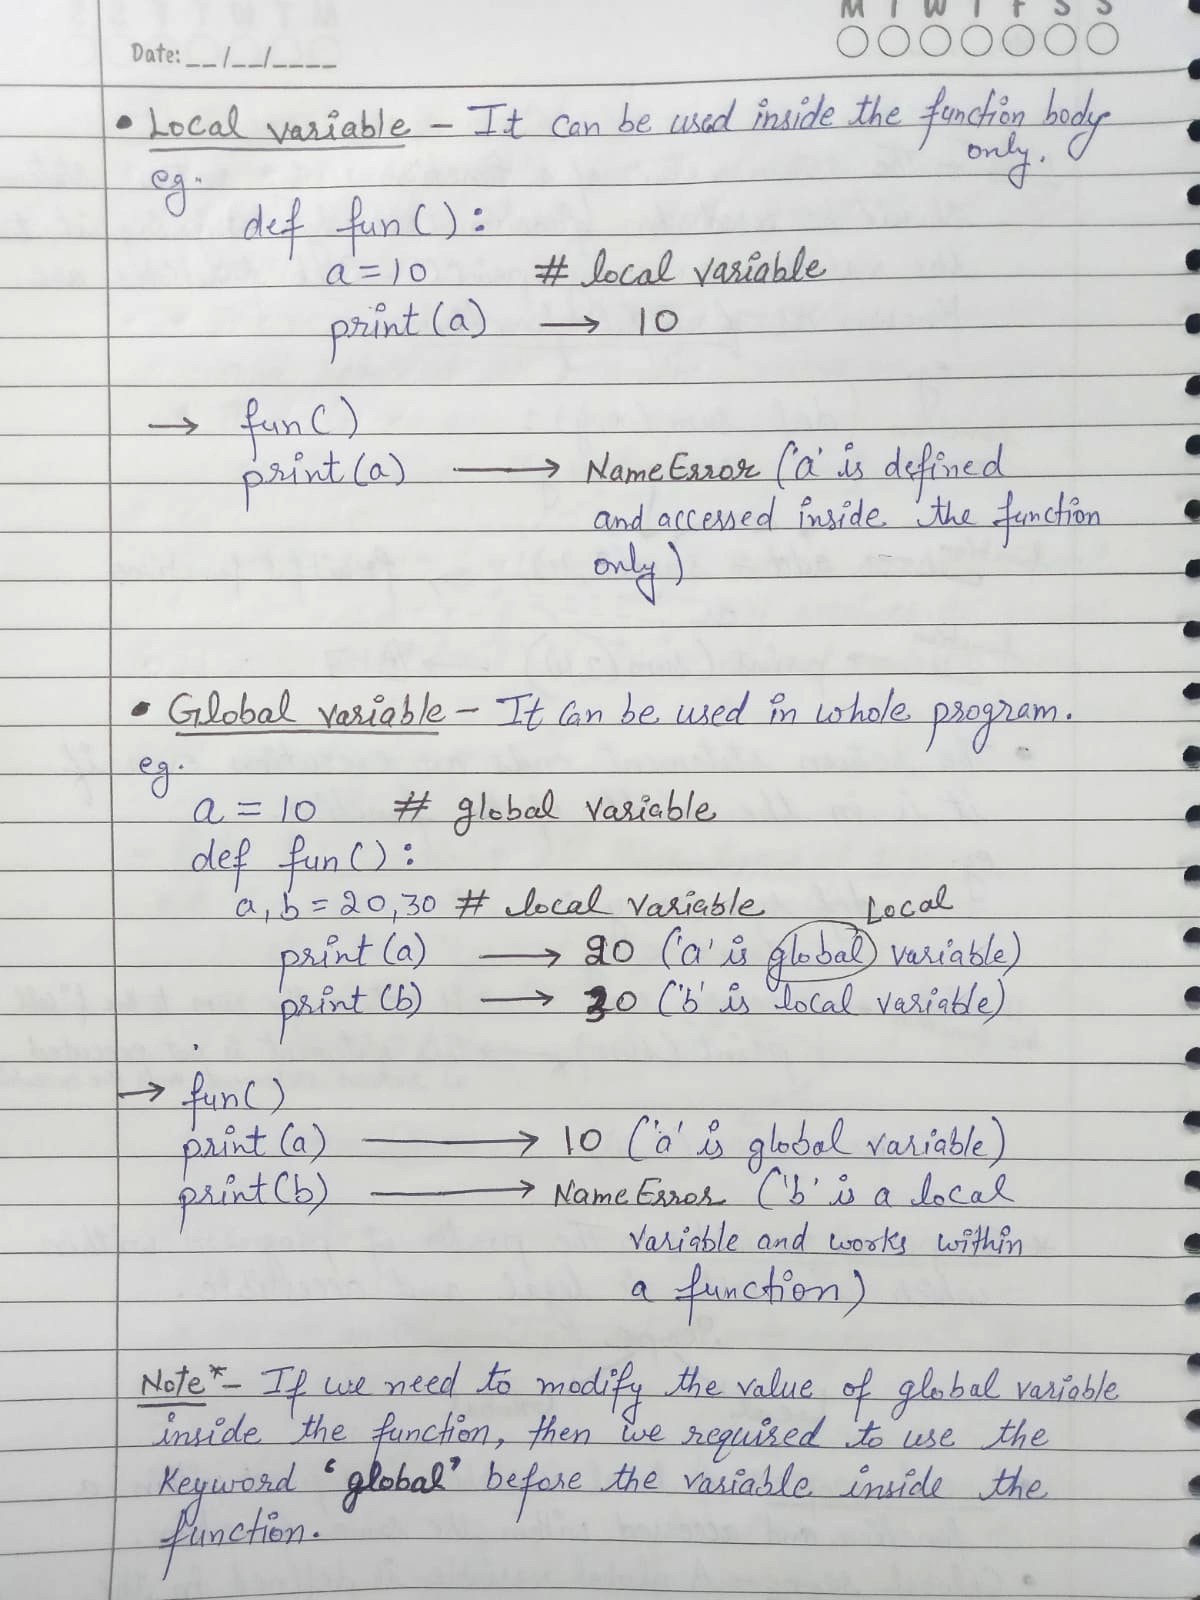 M T W T F S S
Date: __/__/____
• Local variable – It can be used inside the function body
only.
eg.
def fun():
a = 10 # local variable
print(a) → 10
→ fun()
print(a) → NameError ('a' is defined
and accessed inside the function
only)
• Global variable – It can be used in whole program.
eg.
a = 10 # global variable
def fun():
a, b = 20, 30 # local variable Local
print(a) → 20 ('a' is global variable)
print(b) → 30 ('b' is local variable)
→ fun()
print(a) → 10 ('a' is global variable)
print(b) → NameError ('b' is a local
variable and works within
a function)
Note* – If we need to modify the value of global variable
inside the function, then we required to use the
keyword "global" before the variable inside the
function.